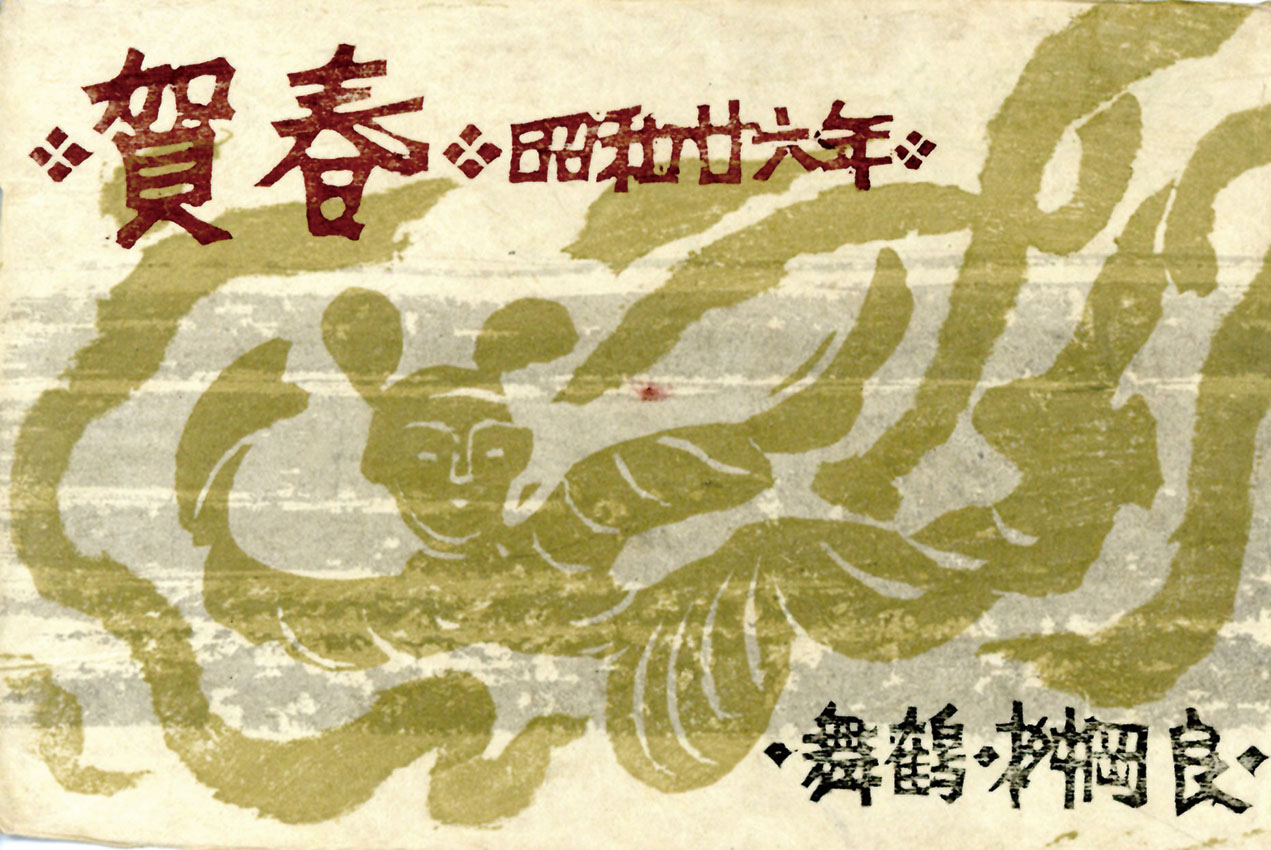 賀春 昭和廿六年
舞鶴・桝綱良